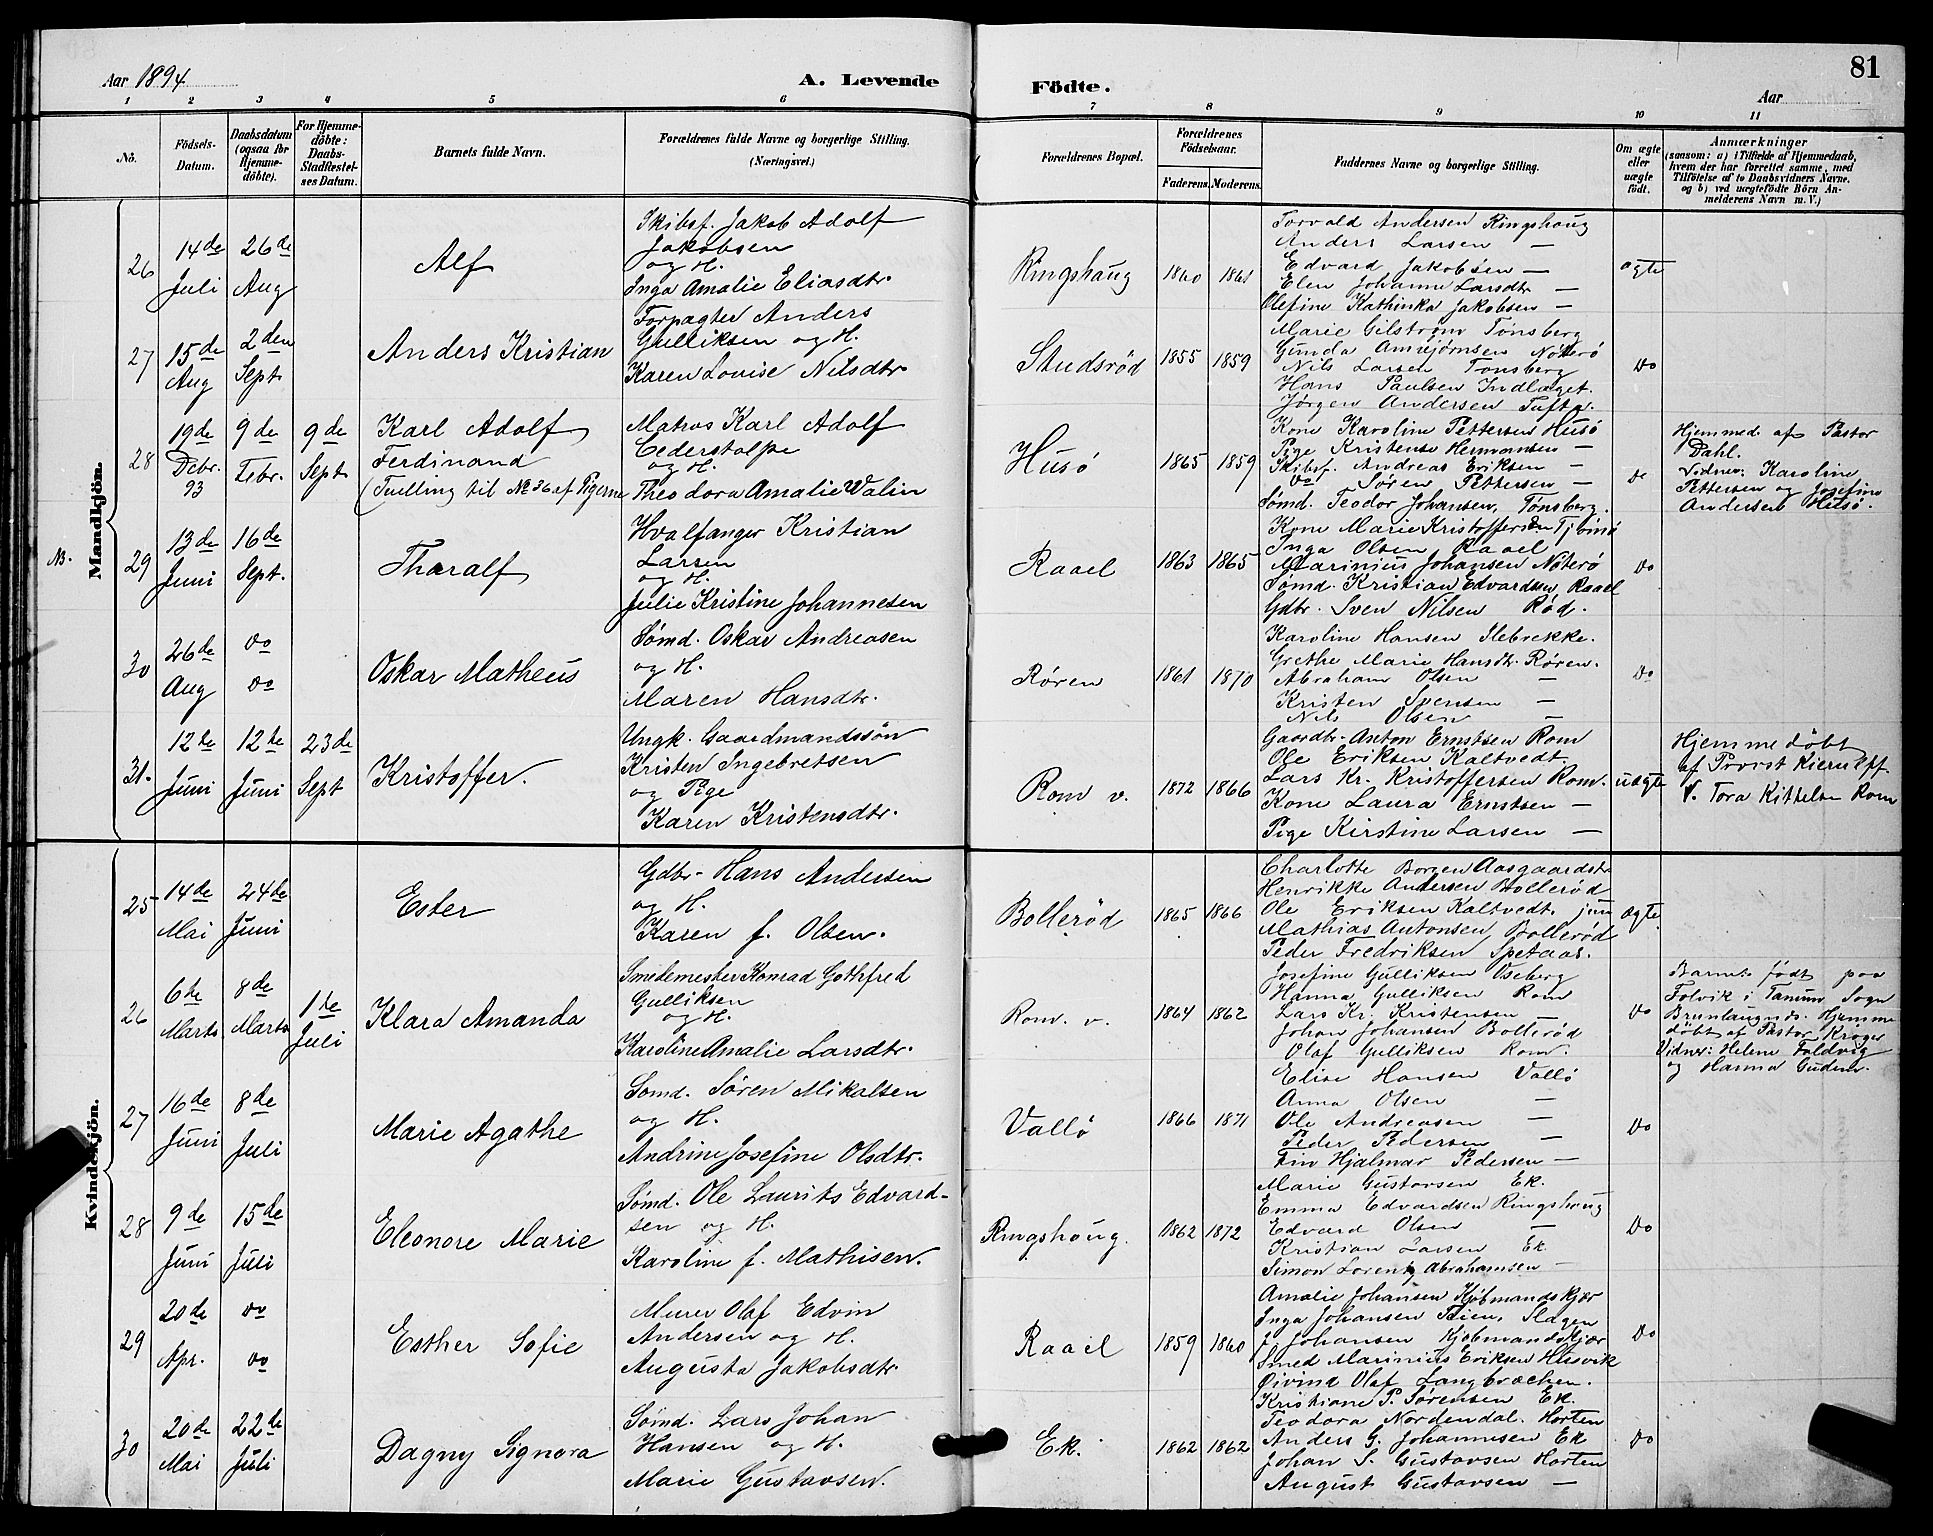 81
Aar 1894
A. Levende Födte.
Aar
1 2 3 4 5 6 7 8 9 10 11
No.
Födsels-Datum.
Daabsdatum (ogsaa for Hjemme-döbte).
For Hjemme-döbte: Daabs-Stadfæstel-ses Datum.
Barnets fulde Navn.
Forældrenes fulde Navne og borgerlige Stilling. (Næringsvei.)
Forældrenes Bopæl.
Forældrenes Födselsaar.
Faderens. Moderens.
Faddernes Navne og borgerlige Stilling.
Om ægte eller uægte födt.
Anmærkninger
(saasom: a) i Tilfælde af Hjemmedaab,
hvem der har forrettet samme, med
Tilföielse af to Daabsvidners Navne,
og b) ved uægtefödte Börn An-
melderens Navn m. V.)
Mandkjön.
26
14de Juli
26de Aug
Alf
Skibsf. Jakob Adolf
Jakobsen
og H.
Inga Amalie Eliasdtr.
Ringshaug
1860 1861
Torvald Andersen Ringshaug
Anders Larsen —
Edvard Jakobsen —
Elen Johanne Larsdtr —
Olefine Kathinka Jakobsen —
ægte
27
15de Aug
2den Sept.
Anders Kristian
Forpagter Anders
Gulliksen og H.
Karen Lovise Nilsdtr.
Studsrød
1855 1859
Marie Gilstrøm Tønsberg
Gunda Arnbjørnsen Nøterø
Nils Larsen Tønsberg
Hans Paulsen Indlaget.
Jørgen Andersen Tufte.
Do
28
19de Debr. 93
9de Febr.
9de Sept
Karl Adolf
Ferdinand
(Tvilling til No 36 af Pigerne
Matros Karl Adolf
Cederstolpe
og H.
Theodora Amalie Walin
Husö
1865 1859
Kone Karoline Pettersen Husö
Pige Kristense Hermansen —
Skibsf. Andreas Eriksen —
Do Søren Pettersen —
Sømd. Teodor Johansen, Tønsberg.
Do
Hjemmed. af Pastor
Dahl.
Vidner: Karoline
Pettersen og Josefine
Andersen Husö.
NB.
29
13de Juni
16de Sept.
Tharalf
Hvalfanger Kristian
Larsen
og H.
Julie Kristine Johannesen
Raael
1863 1865
Kone Marie Kristoffersen Tjömö
Inga Olsen Raael
Marinius Johansen Nøterö
Sømd. Kristian Edvardsen, Raael
Gdbr. Sven Nilsen Rød.
Do
30
26de Aug
Do Do
Oskar Matheus
Sømd. Oskar Andreasen
og H.
Maren Hansdtr.
Røren
1861 1870
Karoline Hansen Slebrekke.
Grethe Marie Hansdtr. Røren.
Abraham Olsen —
Kristen Svensen —
Nils Olsen —
Do
31.
12te Juni
12te Juni
23de Sept
Kristoffer.
Ungk. Gaardmandssøn
Kristen Ingebretsen
og Pige
Karen Kristensdtr.
Rom v.
1872 1866
Gaardbr. Anton Ernstsen Rom
Ole Eriksen Kaltvedt.
Lars Kr. Kristoffersen Rom.
Kone Laura Ernstsen —
Pige Kirstine Larsen —
uægte
Hjemmedöbt
af Provst Kierulf
V. Tora Kittelsen Rom
Kvindekjön.
25
14de Mai
24de Juni
Ester
Gdbr. Hans Andersen
og H.
Karen f. Olsen.
Bollerød
1865 1866
Charlotte Borgen Aasgaardstr
Henrikke Andersen Bollerød
Ole Eriksen Kaltvedt. jun
Mathias Antonsen, Bollerød
Peder Fredriksen Spetaas.
Ægte
26
6te Marts
8de Marts
1te Juli
Klara Amanda
Smedemester Konrad Gothfred
Gulliksen
og H.
Karoline Amalie Larsdtr.
Rom. v.
1864 1862
Josefine Gulliksen Oseberg
Hanna Gulliksen Rom
Lars Kr. Kristensen —
Johan Johansen Bollerød
Olaf Gulliksen Rom.
Do
Barnet födt paa
Folvik i Tanum Sogn
Brunlaugnds. Hjemme
döbt af Pastor Krøger
Vidner: Helene Foldvig
og Hanna Gudem.
27
16de Juni
8de Juli
Marie Agathe
Somd. Søren Mikalsen
og H.
Andrine Josefine Olsdtr.
Vallö
1866 1871
Elise Hansen Vallö
Anna Olsen —
Ole Andreasen —
Peder Pedersen —
Fin Hjalmar Pedersen —
Do
28
9de Juni
15de Juli
Eleonore Marie
Sømd. Ole Laurits Edvard-
sen og H.
Karoline f. Mathisen.
Ringshoug.
1862 1872
Marie Gustavsen Ek.
Emma Edvardsen Ringshoug
Edvard Olsen —
Kristian Larsen Ek.
Simon Lorentz Abrahamsen —
Do
29
20de Apr.
Do Do
Esther Sofie
Murer Olaf Edvin
Andersen og H.
Augusta Jakobsdtr.
Raael
1859 1860
Amalie Johansen Kjöbmandskjær
Inga Johansen Teien, Slagen
J. Johansen Kjobmandskjær
Smed Marinius Eriksen Husvik
Øivind Olaf Langbrachen.
Do
30
20de Mai
22de Juli
Dagny Signora
Sømd. Lars Johan
Hansen og H.
Marie Gustavsen.
Ek.
1862 1862
Kristiane P. Sørensen Ek.
Teodora Nordendal. Horten
Anders G. Johannesen Ek
Johan S. Gustavsen Horten
August Gustavsen —
Do